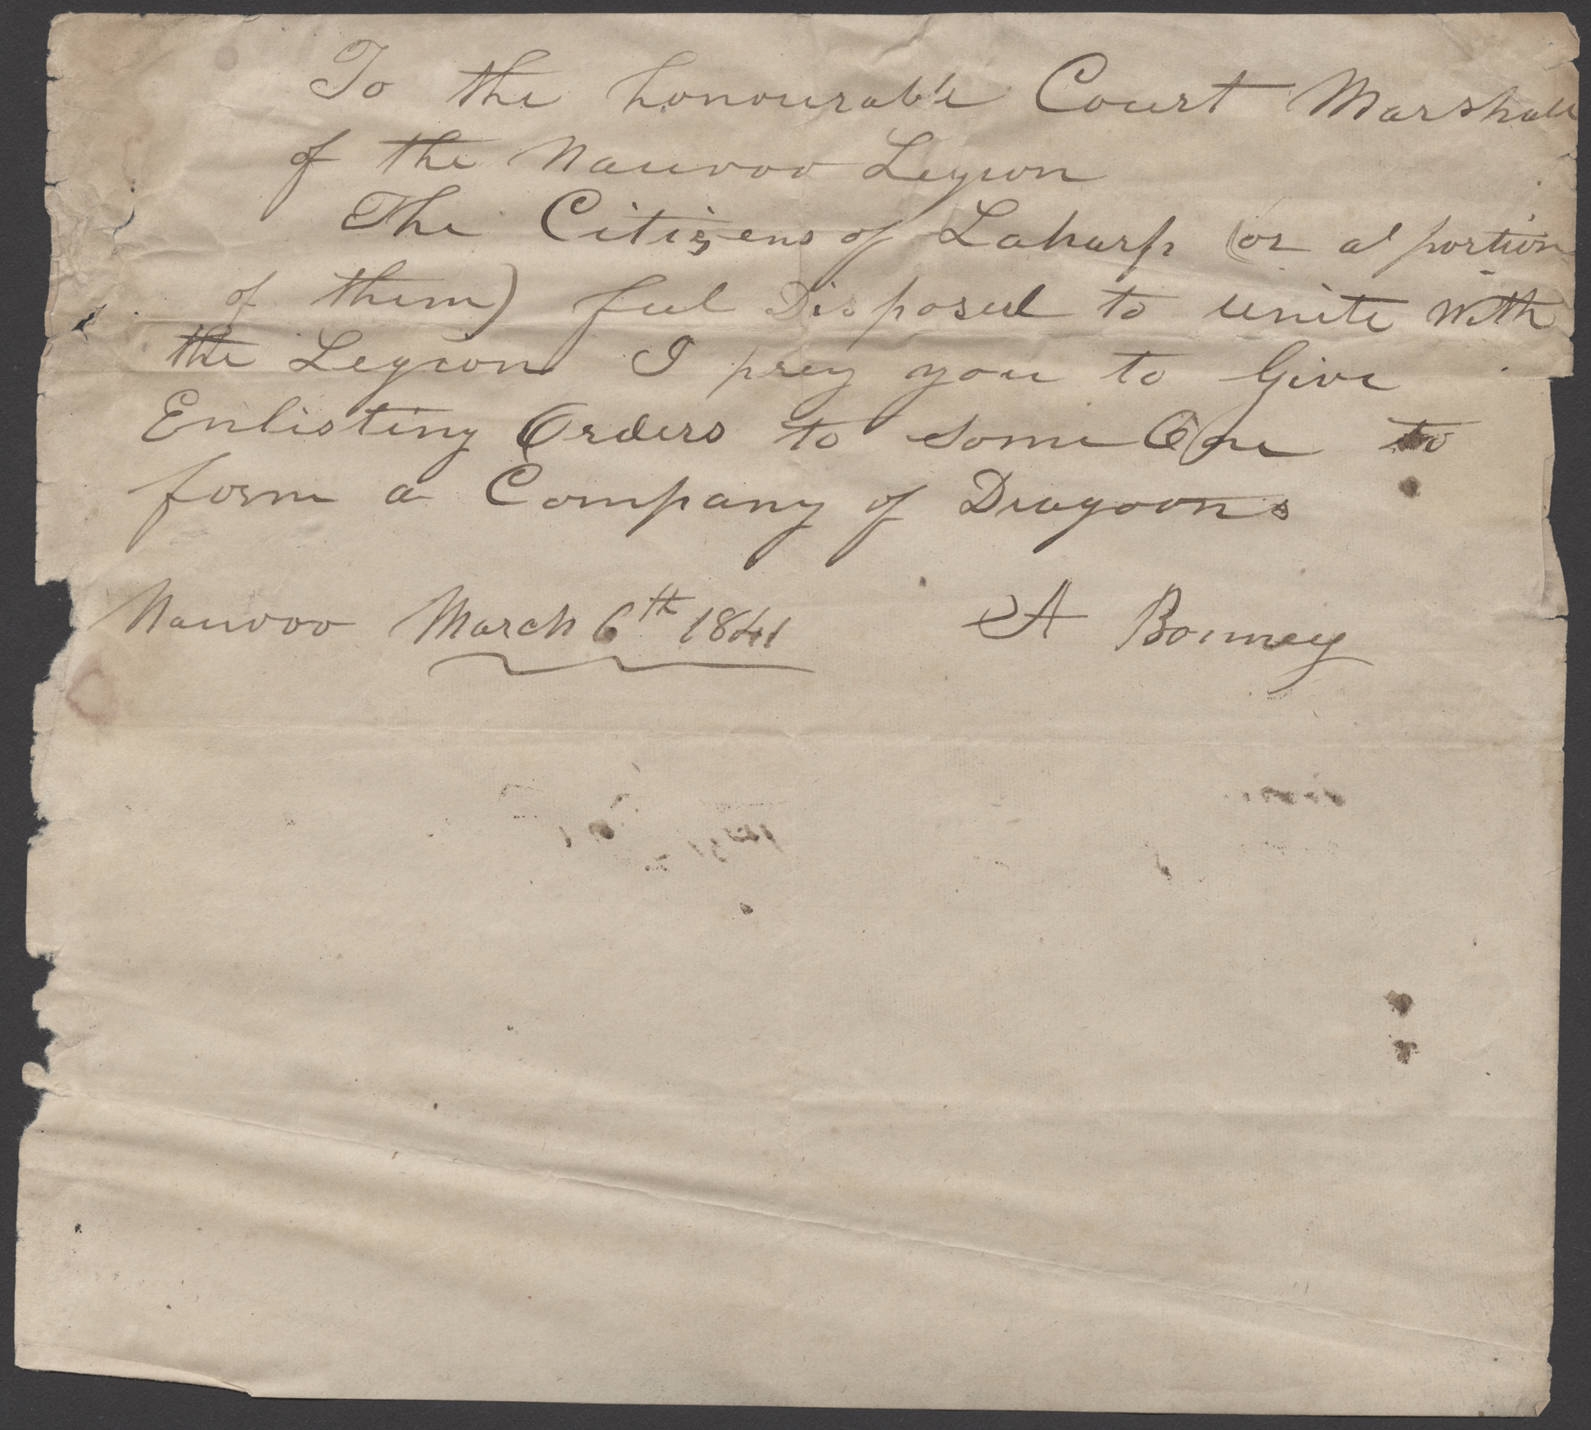 To the honourable Court Marshall
of the Nauvoo Legion
The Citizens of Laharp (or a portion
of them) feel Disposed to unite with
the Legion I prey you to Give
Enlisting Orders to some One to
form a Company of Dragoons
Nauvoo March 6th 1841 A Bonney